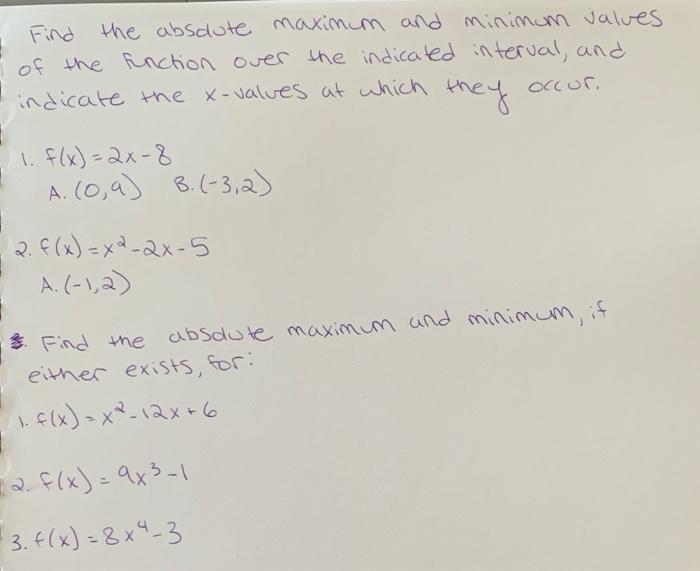 Find the absolute maximum and minimum values
of the function over the indicated interval, and
indicate the x-values at which they occur.
1. f(x) = 2x - 8
A. (0,9) B. (-3,2)
2. f(x) = x² - 2x - 5
A. (-1,2)
Find the absolute maximum and minimum, if
either exists, for:
1. f(x) = x² - 12x + 6
2. f(x) = 9x³ - 1
3. f(x) = 8x⁴ - 3